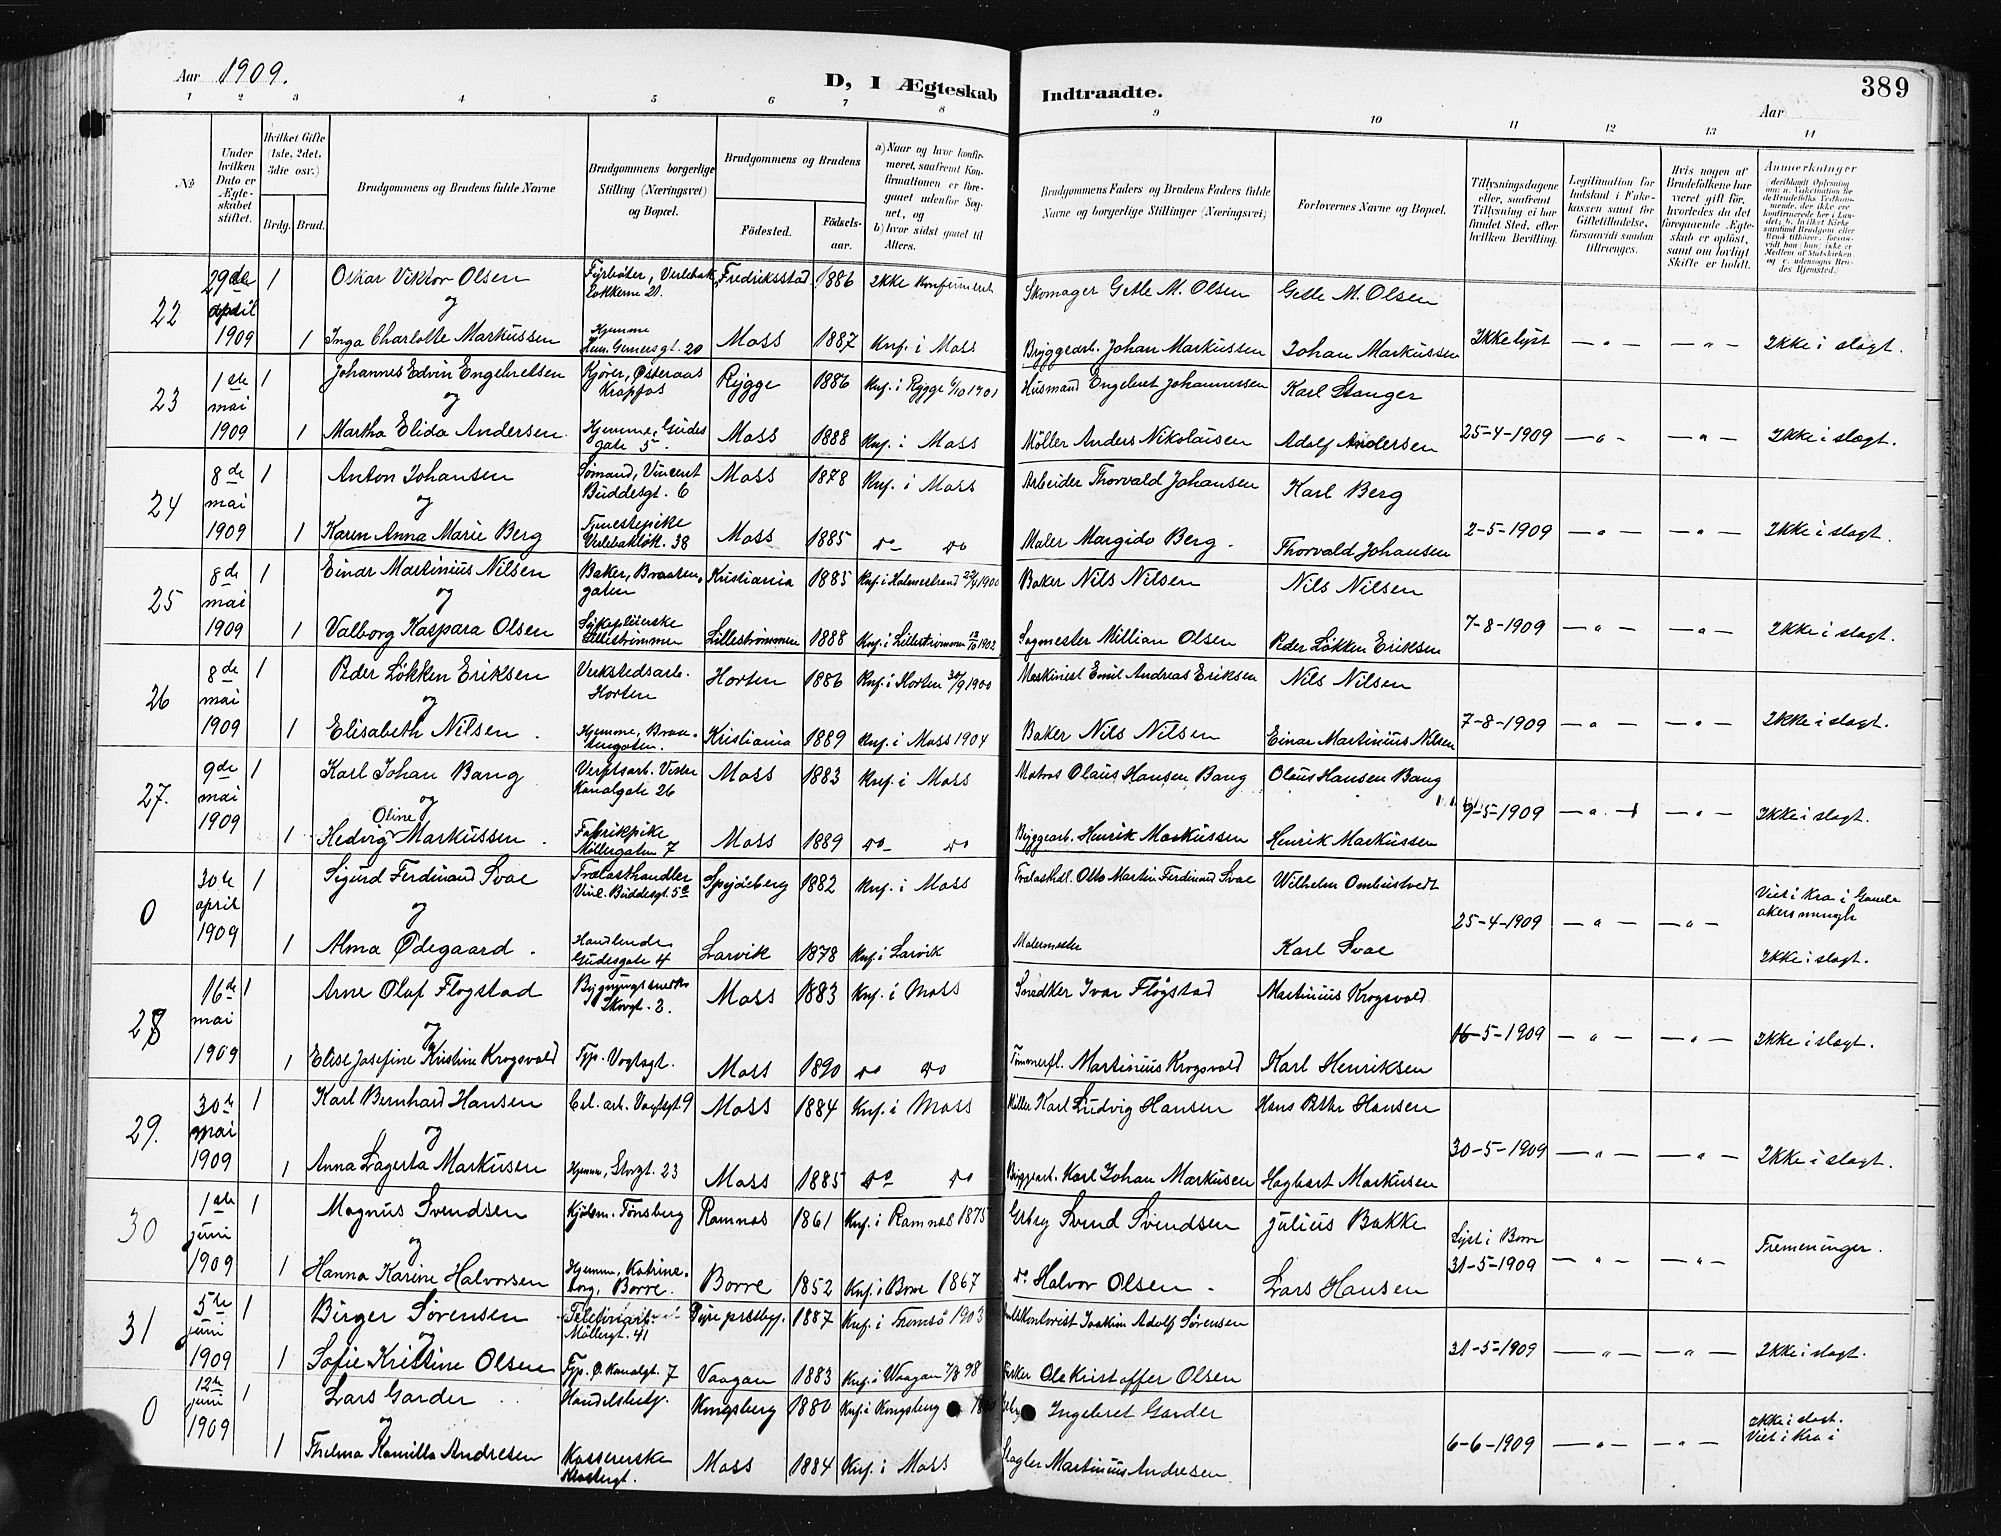 Aar 1909.
D, I Ægteskab Indtraadte.
Aar
389
1 2 3 4 5 6 7 8 9 10 11 12 13 14
No
Under hvilken Dato er Ægteskabet stiftet.
Hvilket Gifte (1ste, 2det, 3die osv.)
Brdg. Brud.
Brudgommens og Brudens fulde Navne
Brudgommens borgerlige Stilling (Næringsvei) og Bopæl.
Brudgommens og Brudens
Fødested. Fødselsaar.
a) Naar og hvor konfirmeret, saafremt Konfirmationen er foregaaet udenfor Sognet, og
b) hvor sidst gaaet til Alters.
Brudgommens Faders og Brudens Faders fulde Navne og borgerlige Stillinger (Næringsvei)
Forlovernes Navne og Bopæl.
Tillysningsdagene eller, saafremt Tillysning ei har fundet Sted, efter hvilken Bevilling.
Legitimation for Indskud i Enkekassen samt for Giftetilladelse, forsaavidt saadan tiltrænges.
Hvis nogen af Brudefolkene har været gift før, hvorledes da det foregaaende Ægteskab er opløst, samt om lovligt Skifte er holdt.
Anmærkninger
22 29de april 1909 1 Oskar Viktor Olsen Fyrbøter, Verlebak løkkerne 21. Fredriksstad 1886 Ikke konfirmeret Skomager Getle M. Olsen Getle M. Olsen
og
1 Inga Charlotte Markussen Hjemme Gernersgt. 20 Moss 1887 Knf. i Moss Bryggearb. Johan Markussen Johan Markussen Ikke lyst — " — — " — Ikke i slægt.
23 1ste mai 1909 1 Johannes Edvin Engebretsen Kjører, Østeraas Krapfos Rygge 1886 Knf. i Rygge 6/10 1901 Husmand Engebret Johannessen Karl Stanger
og
1 Martha Elida Andersen. Hjemme, Gudes gate 5. Moss 1888 Knf. i Moss Møller Anders Nikolaisen Adolf Andersen 25-4-1909 — " — — " — Ikke i slægt.
24 8de mai 1909 1 Anton Johansen Sømand, Vincent Buddesgt. 6 Moss 1878 Knf. i Moss Arbeider Thorvald Johansen Karl Berg
og
1 Karen Anna Marie Berg Tjenestepike Verlebakløk. 38 Moss 1885 do do Maler Margido Berg. Thorvald Johansen 2-5-1909 — " — — " — Ikke i slægt.
25 8de mai 1909 1 Einar Martinius Nilsen Baker, Braatengaten Kristiania 1885 Knf. i Holmestrand 1900 Baker Nils Nilsen Nils Nilsen
og
1 Valborg Kaspara Olsen Sykepleierske Lillestrømmen Lillestrømmen 1888 Knf. i Lillestrømmen 12/10 1902 Sagmester Millian Olsen Peder Løkken Eriksen 7-8-1909 — " — — " — Ikke i slægt.
26 8de mai 1909 1 Peder Løkken Eriksen Verkstedsarb. Horten Horten 1886 Knf. i Horten 30/9 1900 Maskinist Emil Andreas Eriksen Nils Nilsen
og
1 Elisabeth Nilsen. Hjemme, Braatengaten. Kristiania 1889 Knf. i Moss 1904 Baker Nils Nilsen Einar Martinius Nilsen 7-8-1909 — " — — " — Ikke i slægt.
27. 9de mai 1909 1 Karl Johan Bang Verftsarb. Vestre Kanalgate 26 Moss 1883 Knf. i Moss Matros Olaus Hansen Bang Olaus Hansen Bang
og
1 Hedvig Oline Markussen. Fabrikpike Møllergaten 7 Moss 1889 do do Bryggearb. Henrik Markussen Henrik Markussen 9-5-1909 — " — — " — Ikke i slægt.
0 30te april 1909 1 Sigurd Ferdinand Svae Trælasthandler Vinc. Buddesgt. 5a Spydeberg 1882 Knf. i Moss Trælasthdl. Otto Martin Ferdinand Svae Wilhelm Ombustvedt
og
25-4-1909 — " — — " — Viet i Kra i Gamle akers mengh
1 Alma Ødegaard. Handlende Gudesgate 4 Larvik 1878 Knf. i Larvik Malermester Karl Svae Ikke i slægt.
28 16de mai 1909 1 Arne Olaf Fløgstad Bygningssnedker Skovgt. 3. Moss 1883 Knf. i Moss Snedker Ivar Fløgstad Martinius Krogsvold
og
1 Elise Josefine Kristine Krogsvold Typ. Vogtsgt. Moss 1890 do do Tømmerfl. Martinius Krogsvold Karl Henriksen 16-5-1909 — " — — " — Ikke i slægt.
29. 30te mai 1909 1 Karl Bernhard Hansen Cel. arb. Vogtsgt 9 Moss 1884 Knf. i Moss Møller Karl Ludvig Hansen Hans Petter Hansen
og
1 Anna Lagerta Markusen Hjemm, Storgt. 23 Moss 1885 do do Bryggearb. Karl Johan Markusen Hagbart Markusen 30-5-1909 — " — — " — Ikke i slægt.
30 1ste juni 1909 1 Magnus Svendsen Kjøbm. Tønsberg Ramnes 1861 Knf. i Ramnes 1875 Grbrg Svend Svendsen Julius Bakke
og
1 Hanna Karine Halvorsen Hjemme, Katrineborg, Borre. Borre 1852 Knf. i Borre 1867 do Halvor Olsen. Lars Hansen Lyst i Borre 31-5-1909 — " — — " — Fremeninger.
31 5te juni 1909 1 Birger Sørensen Møllergt. 41 1887 Knf. i Tromsø 1903 Joakim Adolf Sørensen
og
1 Sofie Kristine Olsen Typ. Ø. Kanalgt. 7 Vaagan 1883 Knf. i Vaagan 98 Fisker Ole Kristoffer Olsen 31-5-1909 — " — — " — Ikke i slægt.
0 12te juni 1909 1 Lars Garder Handelsbetj. Kongsberg 1880 Knf. i Kongsberg Ingebret Garder
og
1 Thelma Kamilla Andresen Kassererske Klostergt. Moss 1884 Knf. i Moss Slagter Martinius Andresen 6-6-1909 — " — — " — Ikke i slægt. Viet i Kra i